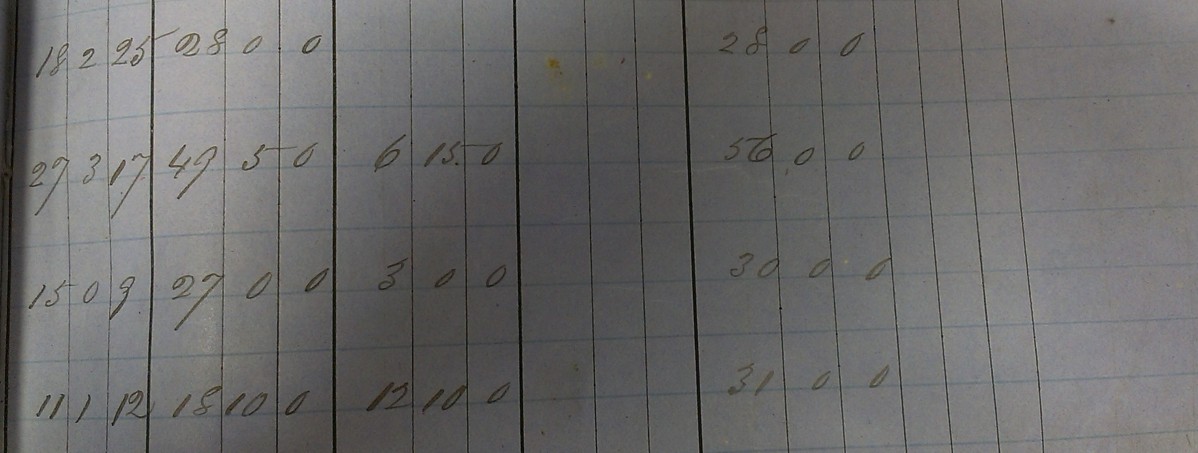 18 2 25 28 0 0 28 0 0
27 3 17 49 5 0 6 15 0 56 0 0
15 0 9 27 0 0 3 0 0 30 0 0
11 1 12 18 10 0 12 10 0 31 0 0